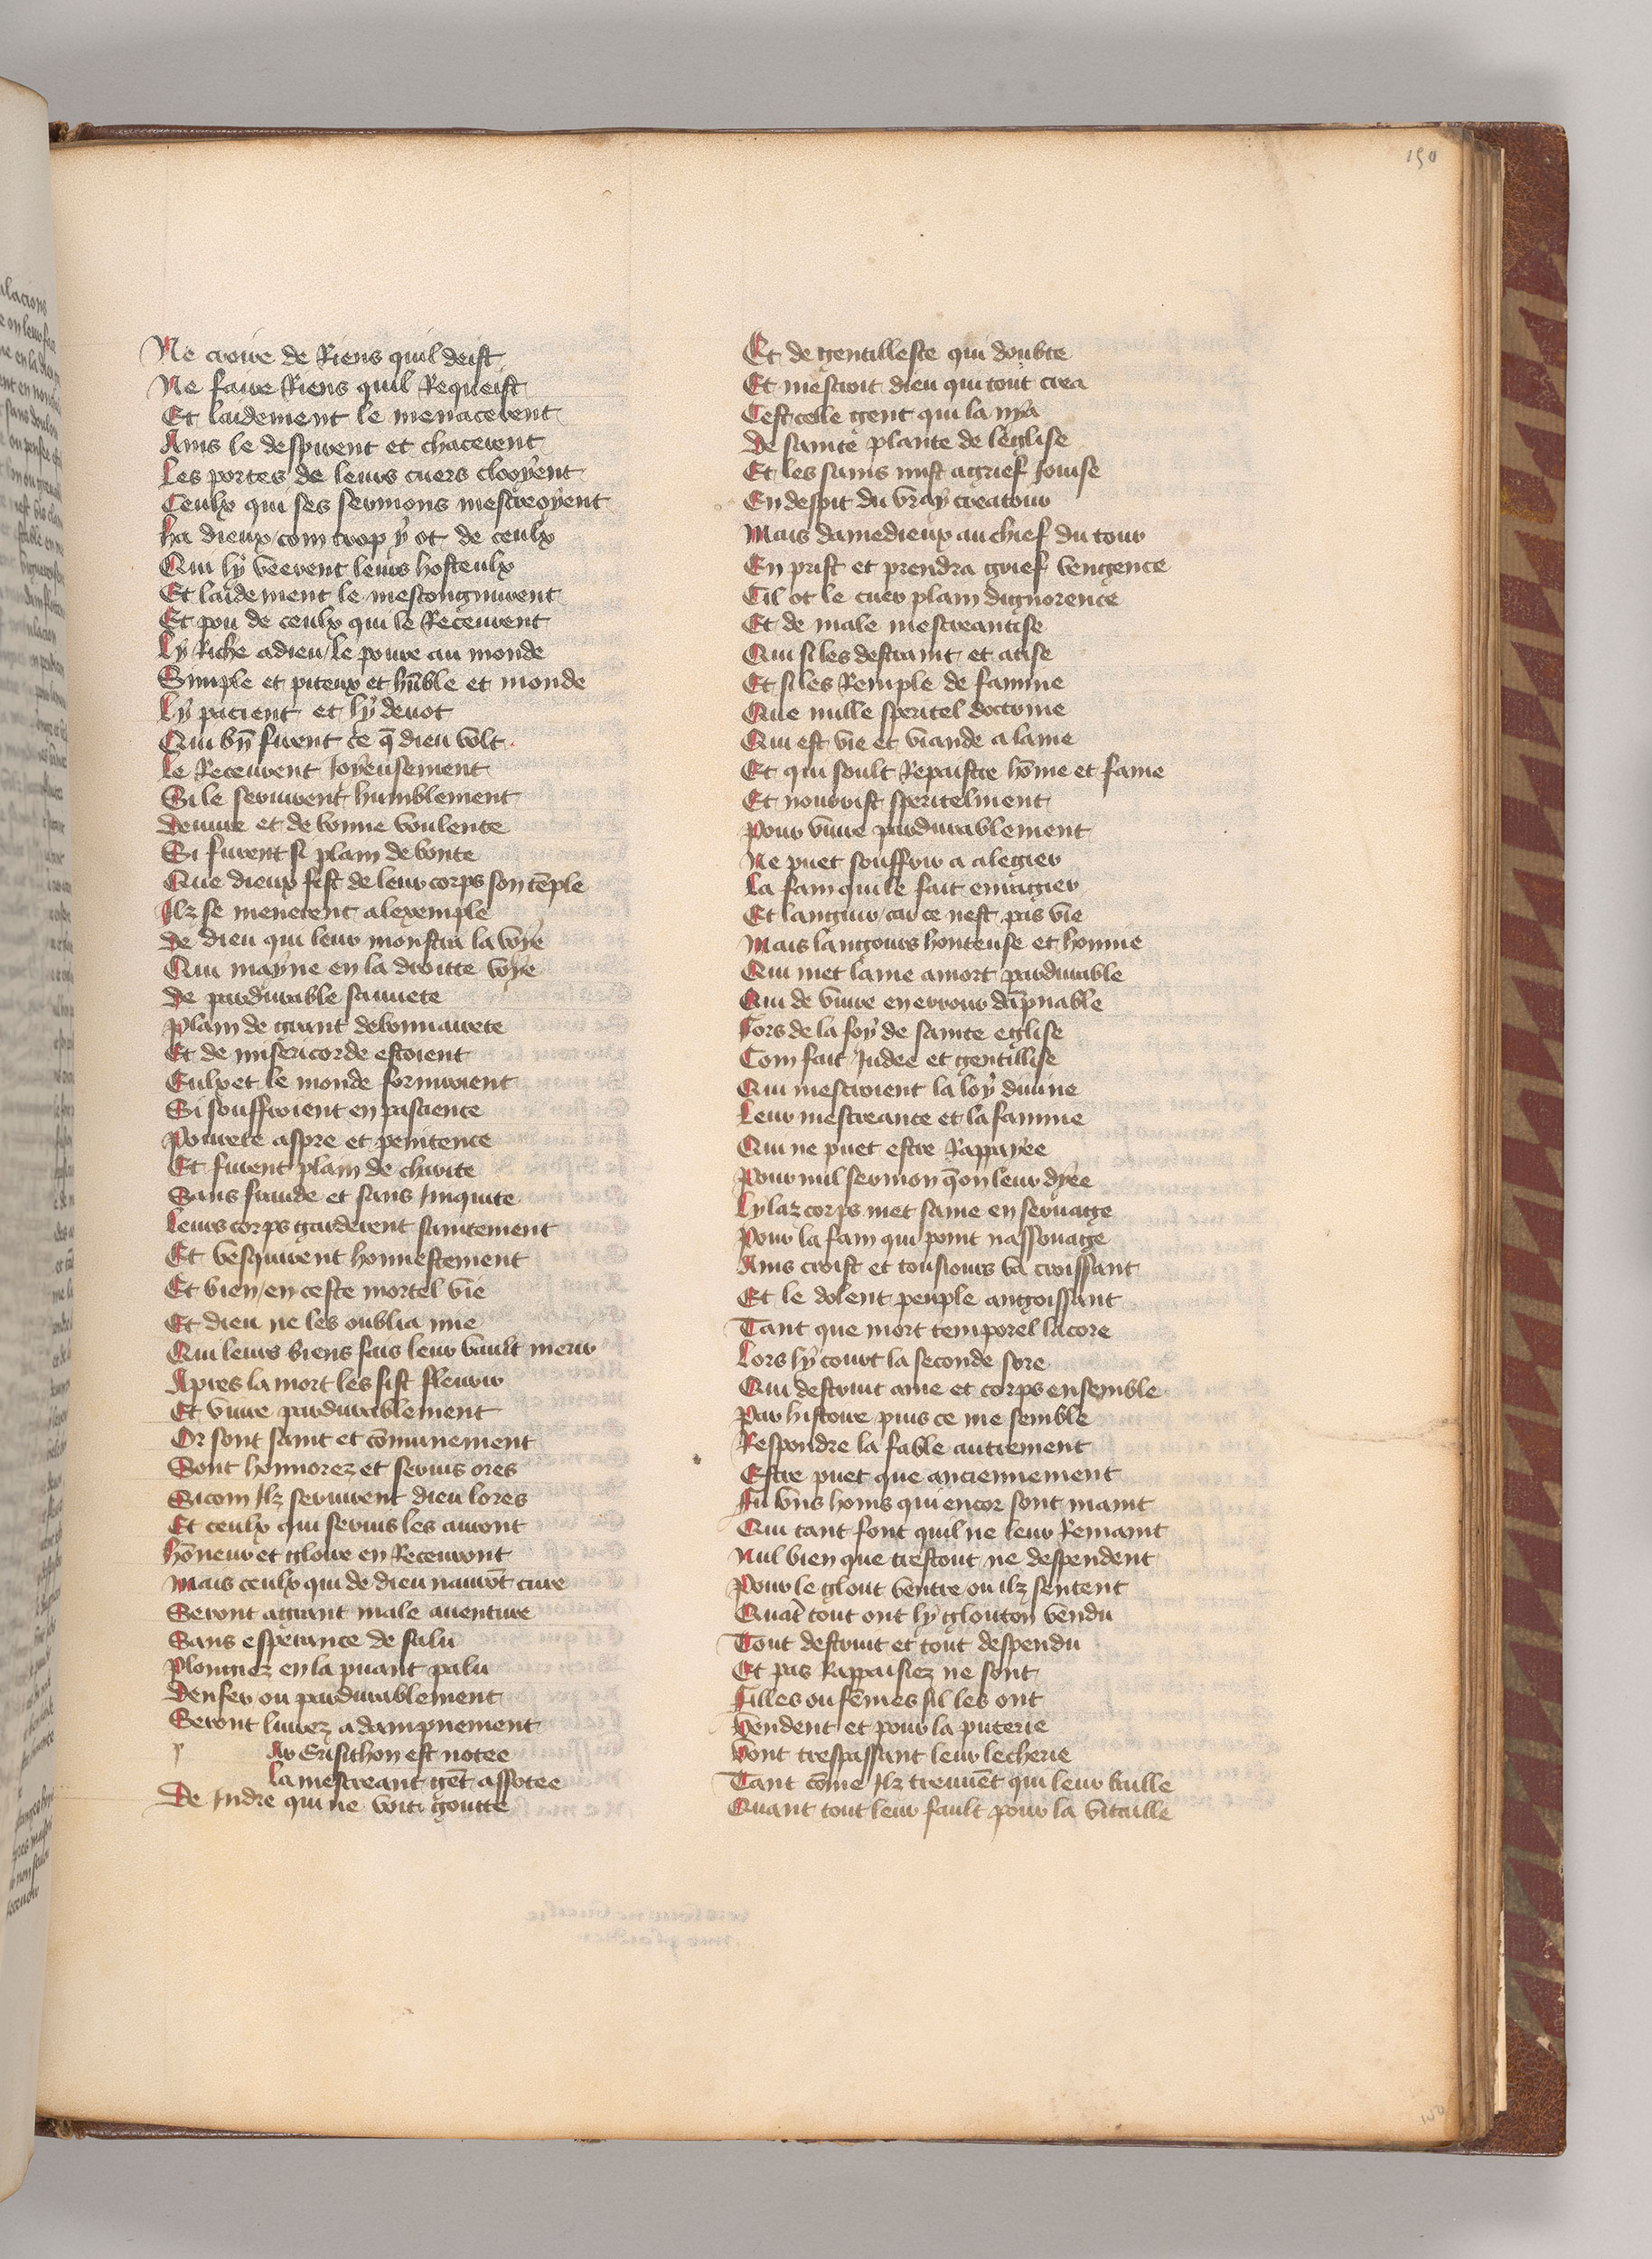 150
Ne croire de Riens quil deist
Ne faire Riens quil Requeist
Et laidement le menacerent
Ains le despirent et chacerent
Les portes de leurs cuers clooyent
Ceulx qui ses sermons mescreoyent
ha dieux com trop y ot de ceulx
Qui ly veerent leurs hosteulx
Et laidement le mescongnurent
Et pou de ceulx qui le Receurent
Ly Riche a dieu / le poure au monde
Simple et piteux et hũble et monde
Ly pacient et ly deuot
Qui bñ firent ce q̃ dieu volt
Le Receurent Joyeusement
Si le seruirent humblement
de vraie et de bonne voulente
Si furent si plain de bonte
Que dieux fist de leur corps son tẽple
Ilz se menerent a lexemple
de dieu qui leur monstra la voye
Qui mayne en la droitte voye
de pardurable sauuete
plain de grant debonnairete
Et de misericorde estoient
Eulx et le monde formuoient
Si souffroient en pascience
Pourete aspre et penitence
Et furent plain de charite
Sans fraude et sans Iniquite
Leurs corps garderent saintement
Et vesquirent honnestement
Et bien / en ceste mortel vie
Et dieu ne les oublia mie
Qui leurs biens fais leur vault merir
Apres la mort les fist fleurir
Et viure pardurablement
Or sont saint et cõmunement
Sont honnorez et seruis ores
Si com Ilz seruirent dieu lores
Et ceulx qui seruis les auront
hõneur et gloire en Receuront
Mais ceulx qui de dieu naurõt cure
Seront a grant male auenture
Sans esperance de salu
Plongiez en la puant palu
denfer ou pardurablement
Seront liurez a dampnement
p
Ar Erisithon est notee
La mescreant gẽt assotee
De Indee qui ne voit goutte
Et de gentillesce qui doubte
Et mescroit dieu qui tout crea
Cest celle gent qui la nya
de sainte plante de leglise
Et les sains mist a grief Jouise
En despit du vray creatour
Mais damedieux au chief du tour
En prist et prendra grief vengence
Cil ot le cuer plain dignorence
Et de male mescreantise
Qui si les destraint et atise
Et si les Remple de famine
Que nulle speritel doctrine
Qui est vie et viande a lame
Et qui soult Repaistre hõme et fame
Et nourrist speritelment
Pour viure pardurablement
Ne puet souffrir a alegier
La fain qui le fait enragier
Et languir / car ce nest pas vie
Mais langours honteuse et honnie
Qui met lame a mort pardurable
Qui de viure en errour dãpnable
Fors de la foy de sainte eglise
Com fait Judee et gentillise
Qui mescroient la loy diuine
Leur mescreance et la famine
Qui ne puet estre Rappayee
Pour nul sermon q̃ on leur dyee
Ly laz corps met same en seruage
Pour la fain qui point nassouage
Ains croist et tousiours va croissant
Et le dolent peuple angoissant
Tant que mort temporel lacore
Lors ly court la seconde sore
Qui destruit ame et corps ensemble
Par histoire puis ce me semble
Respondre la fable autrement
Estre puet que anciennement
Fu vns homs qui encor sont maint
Qui tant font quil ne leur Remaint
Nul bien que trestout ne despendent
Pour le glout ventre ou ilz sentent
Quãt tout ont ly glouton vendu
Tout destruit et tout despendu
Et pas Rappaisiez ne sont
Filles ou fẽmes sil les ont
Vendent et pour la puterie
Vont trespassant leur lecherie
Tant cõme Ilz treuuẽt qui leur baille
Quant tout leur fault pour la vitaille
150